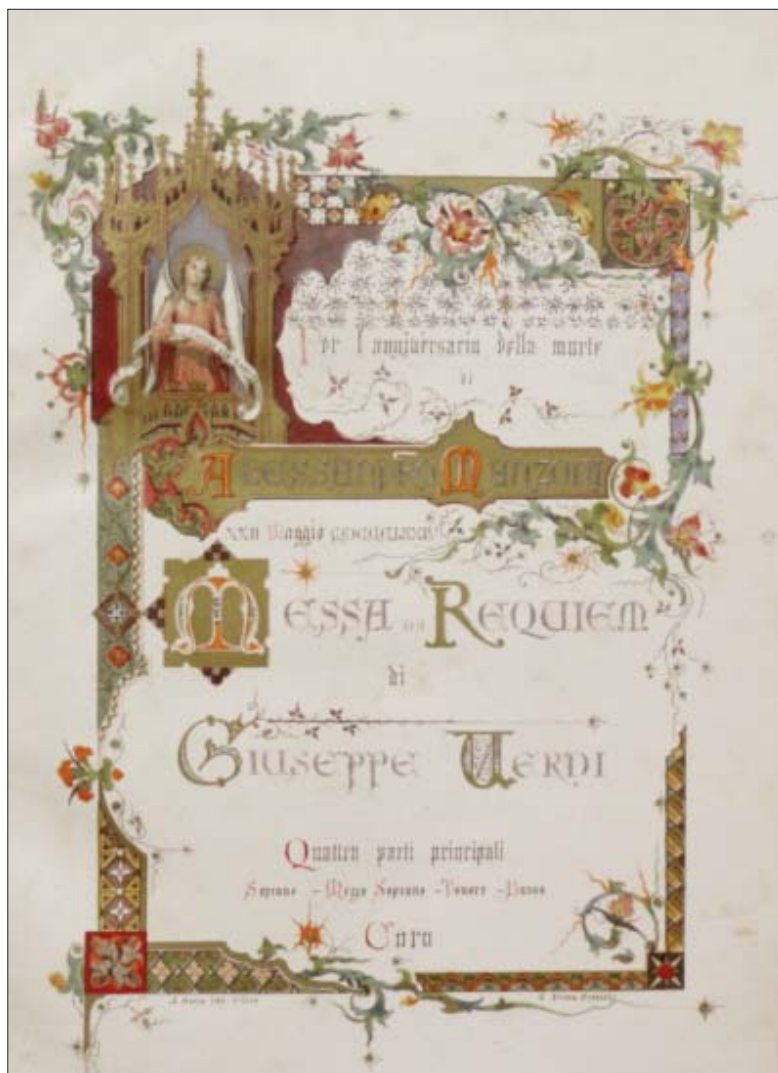 Per l'anniversario della morte
di
ALESSANDRO MANZONI
XXII Maggio
MESSA DA REQUIEM
di
GIUSEPPE VERDI
Quattro parti principali
Soprano - Mezzo Soprano - Tenore - Basso
Coro